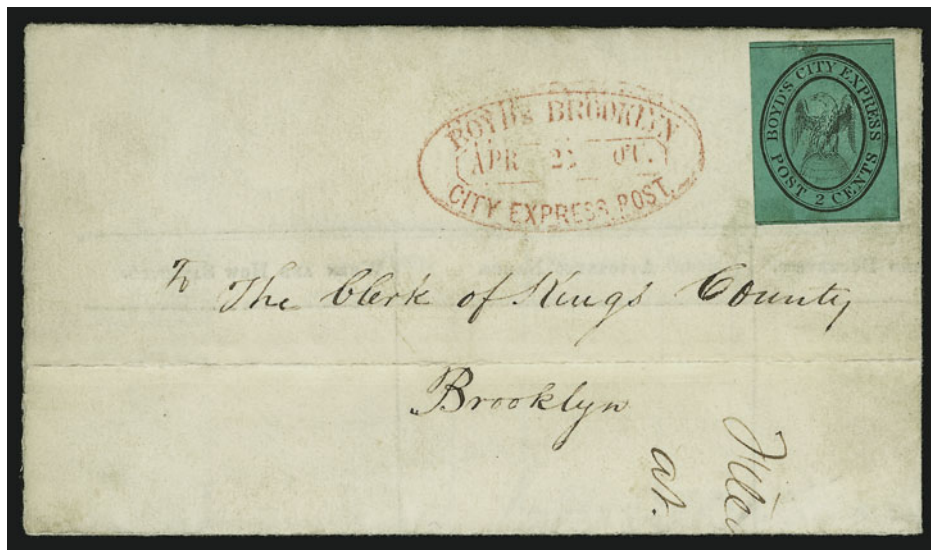 BOYD'S BROOKLYN
APR 22
CITY EXPRESS POST.
BOYD'S CITY EXPRESS
POST 2 CENTS
To
The Clerk of Kings County
Brooklyn
at.